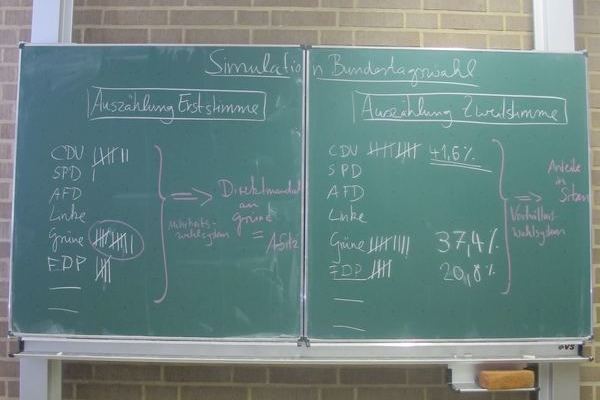 Simulation Bundestagswahl
Auszählung Erststimme
CDU
SPD
AFD
Linke
Grüne
FDP
Mehrheits-
wahlsystem
Direktmandat
an
grüne
=
1 Sitz
Auszählung Zweitstimme
CDU 41,6%
SPD
AFD
Linke
Grüne 37,4%
FDP 20,8%
Verhältnis-
wahlsystem
Anteile
in
Sitzen